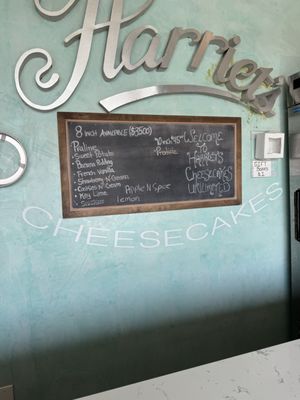 Harriet's
8 INCH AVAILABLE ($35.00)
Praline
• Sweet Potato
• Banana Pudding
• French Vanilla
• Strawberry N Cream
• Cookies N Cream
• Key Lime
Apple N Spice
lemon
WELCOME
TO
HARRIET'S
CHEESECAKES
UNLIMITED
GIFT
BOXES
CHEESECAKES